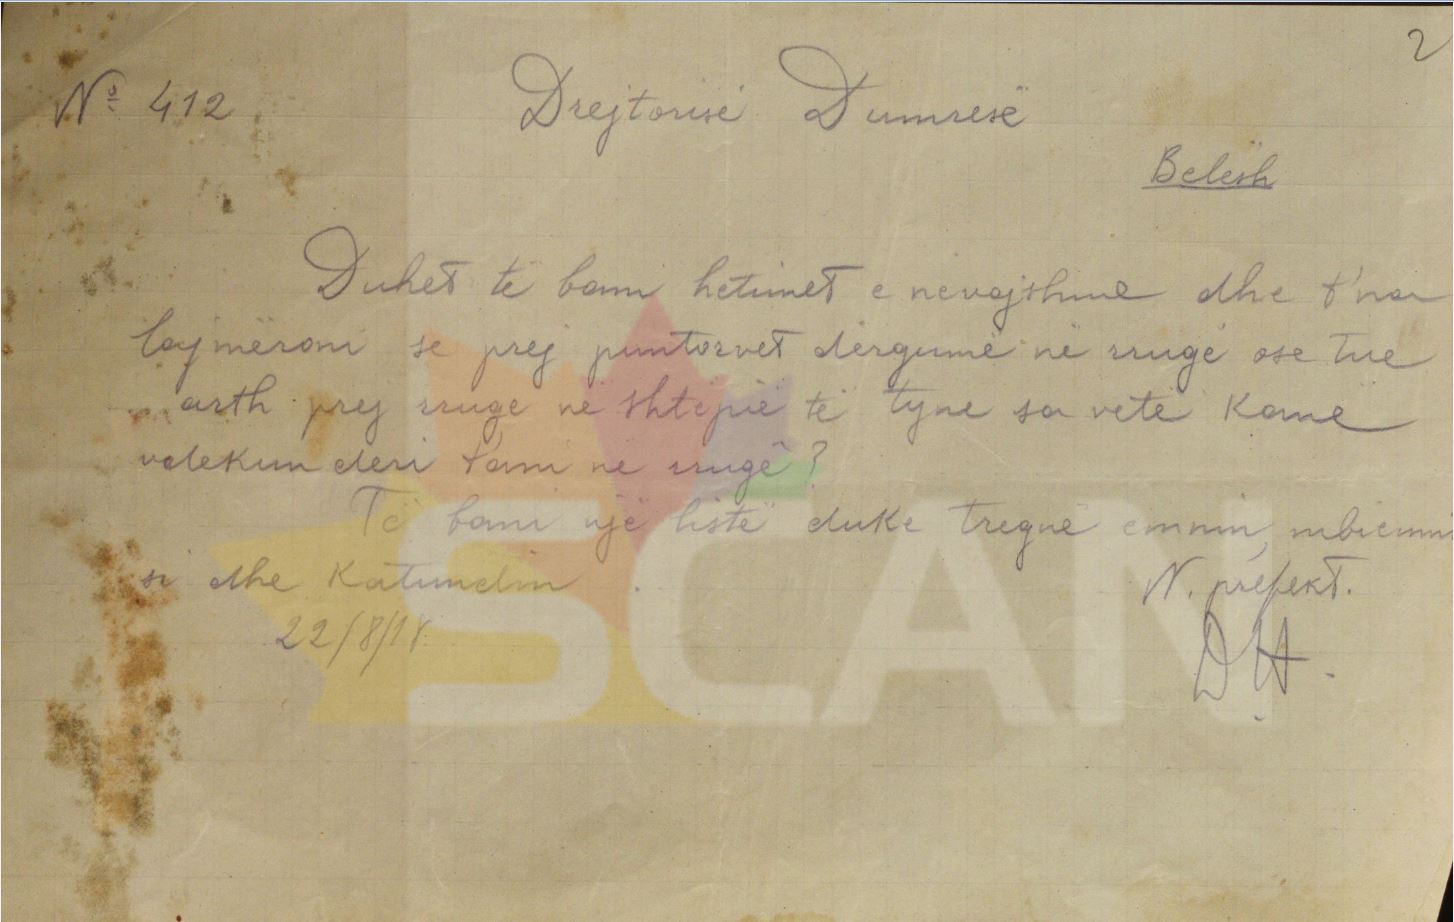 2
Nº 412 Drejtorisë Dumresë
Belësh
Duhet të bani hetimet e nevojshme dhe t'na
lajmëroni se prej puntorvet dërgumë në rrugë ose tue
ardh prej rruge në shtëpië të tyne sa vetë kanë
vdekun deri t'ani në rrugë?
Të bani një listë duke tregue emnin, mbiemni
si dhe Katundin.
N. prefekt.
22/8/18.
D H.
SCAN